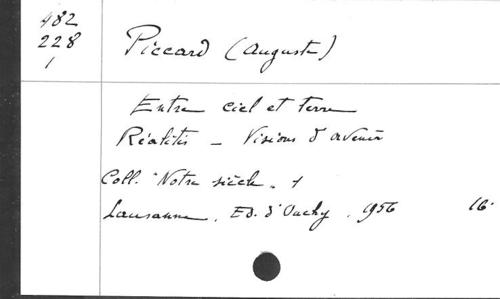 482
228
1
Piccard (Auguste)
Entre ciel et terre
Réalités - Visions d'avenir
Coll. "Notre siècle. 1
Lausanne, Ed. d'Ouchy, 1956 16.